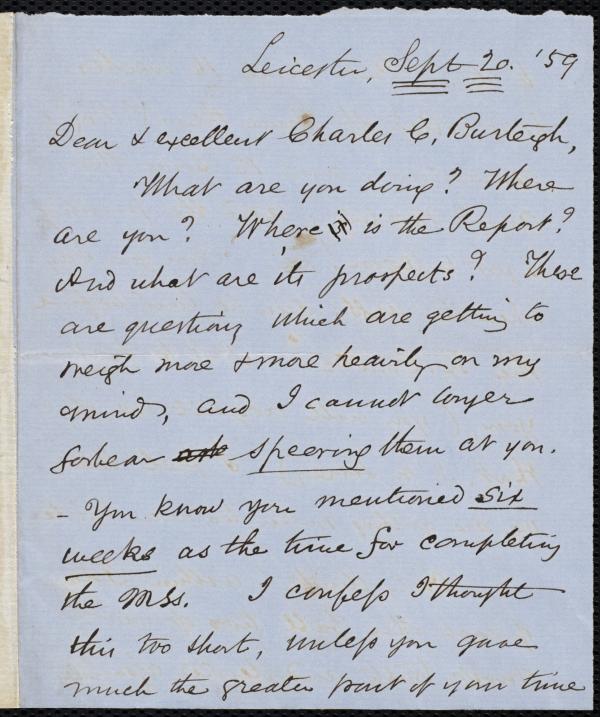 Leicester, Sept 20. '59
Dear & excellent Charles C. Burleigh,
What are you doing? Where
are you? Where is the Report?
And what are its prospects? These
are questions which are getting to
weigh more & more heavily on my
mind, and I cannot longer
forbear ask speering them at you.
- You know you mentioned six
weeks as the time for completing
the MSS. I confess I thought
this too short, unless you gave
much the greater part of your time